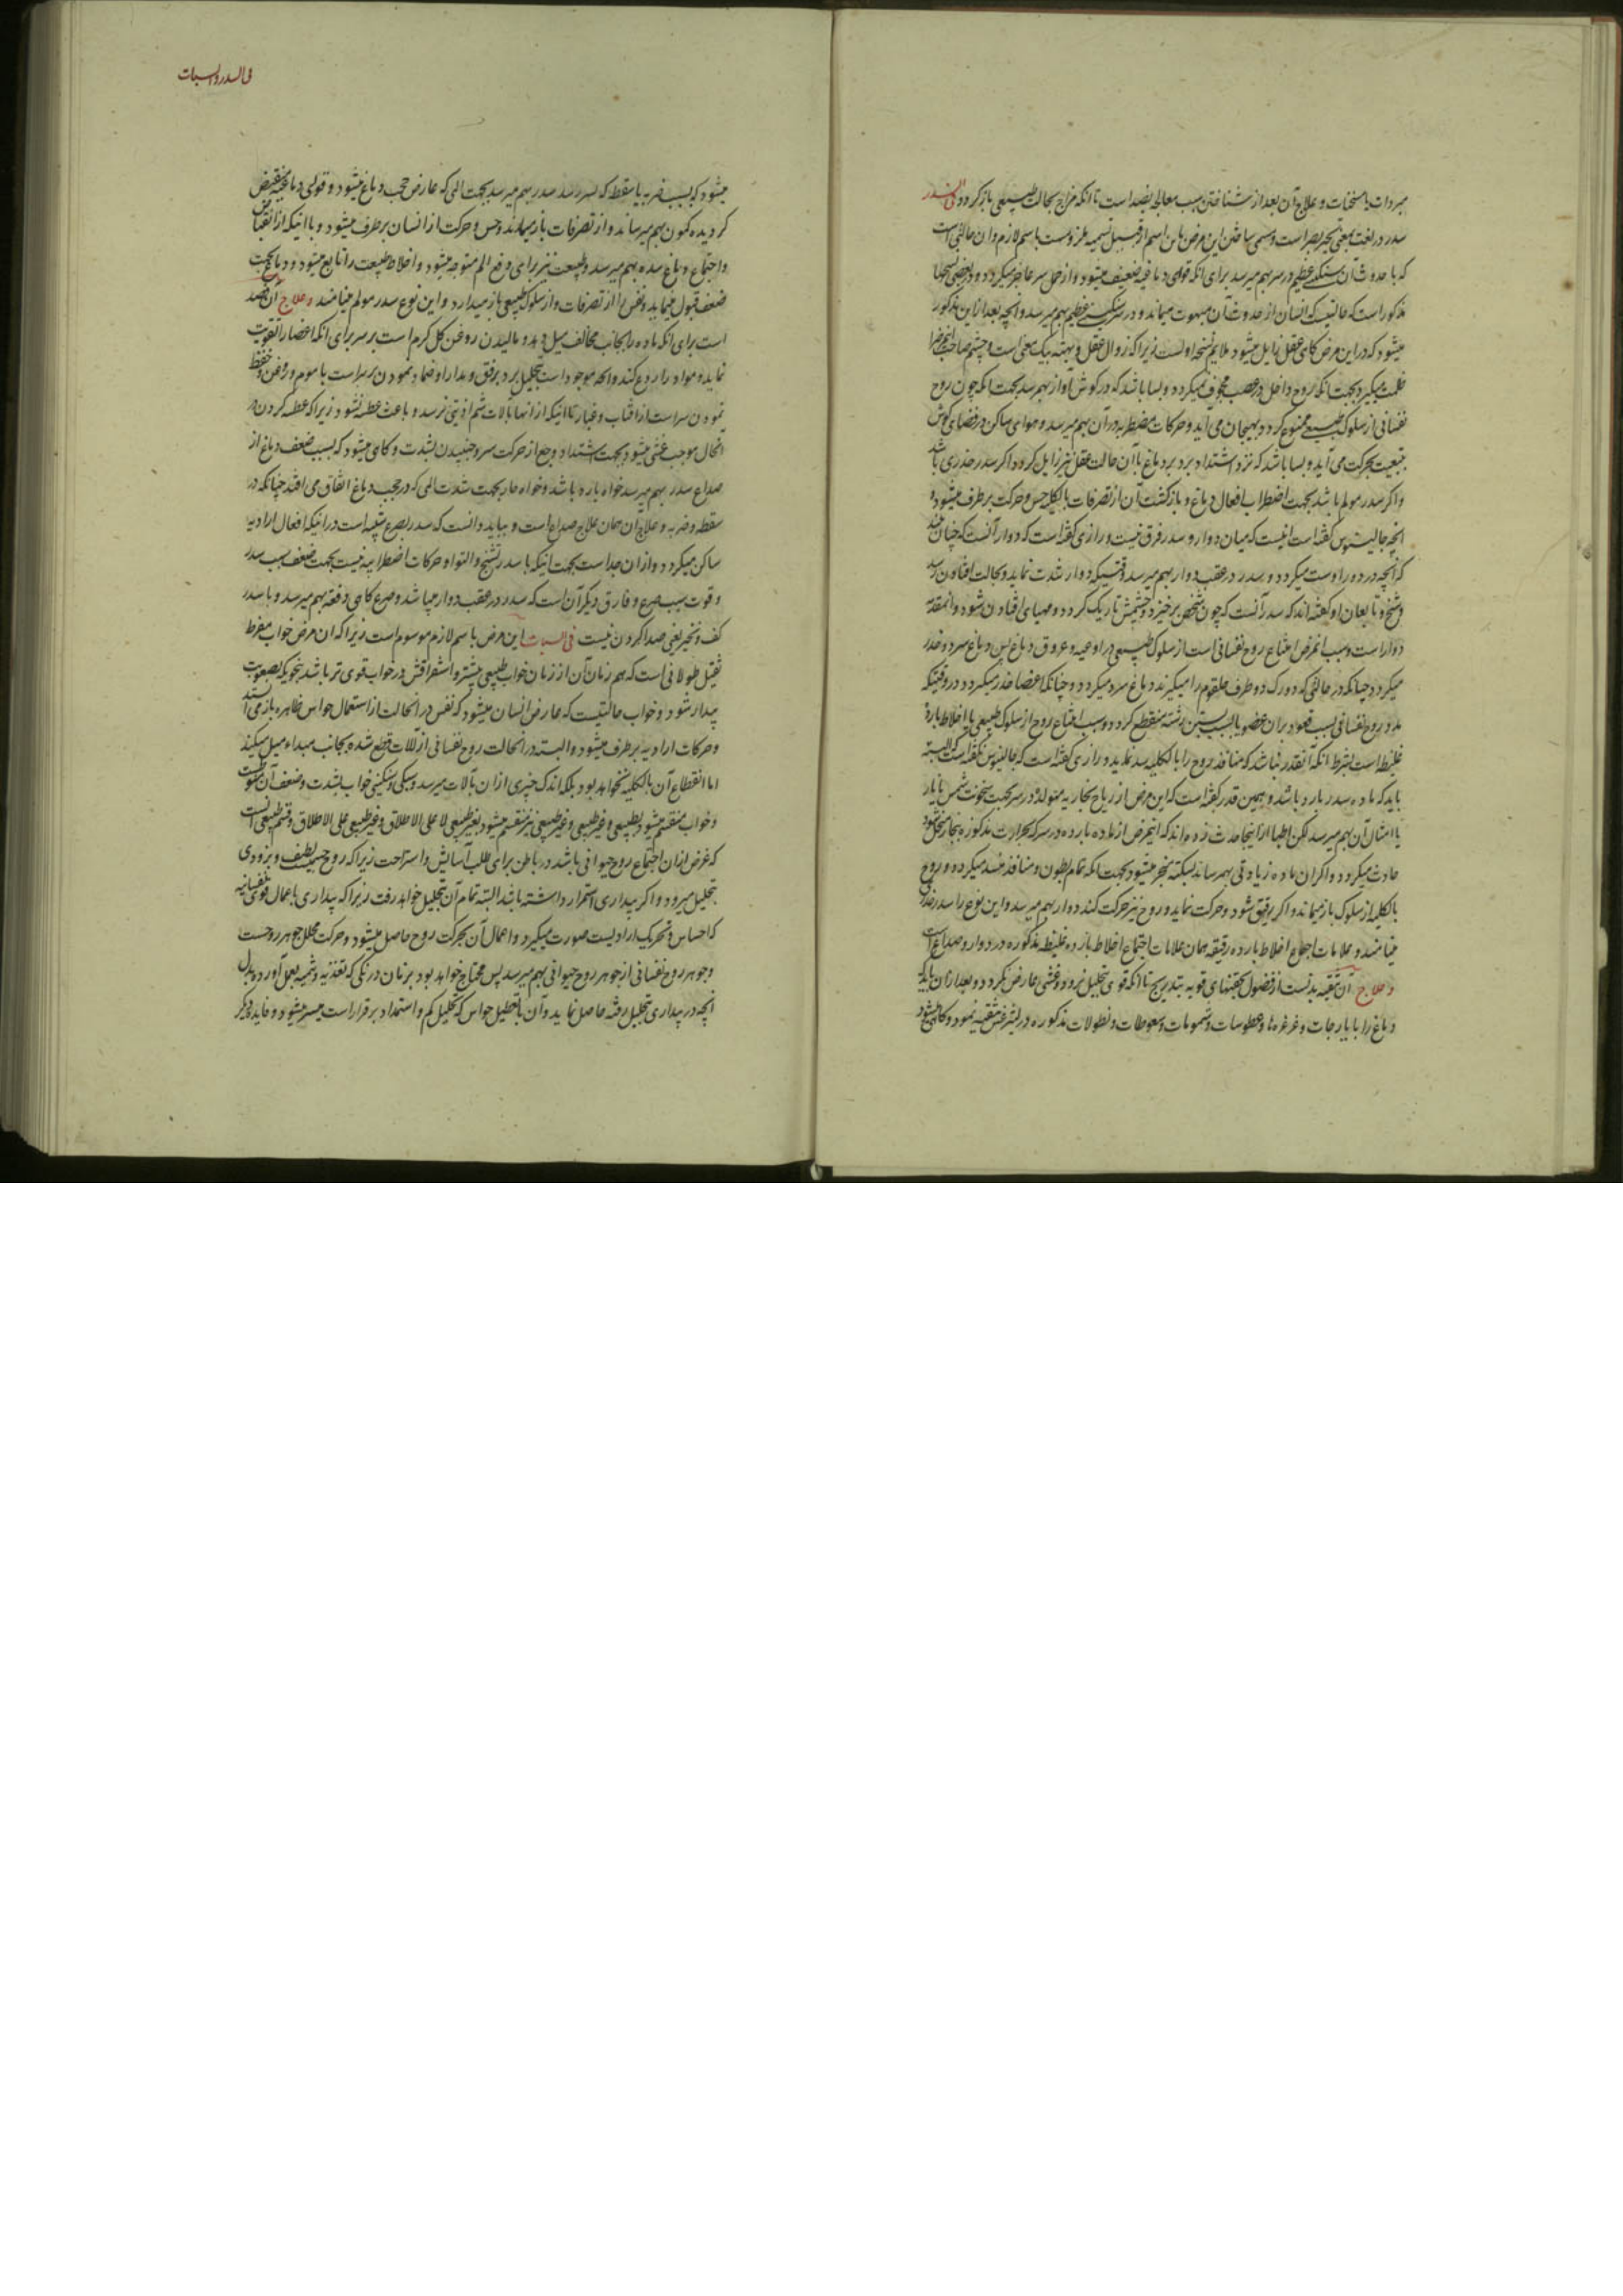 مبردات یا مسخنات و علاج آن بعد از شناختن سبب معالجه بضد است تا انکه مزاج بحالت طبیعی باز کردد فی السدر
سدر در لغت بمعنی تحیر بصر است و مسمی ساختن این مرض باین اسم از قبیل تسمیه ملزومست باسم لازم و ان حالتی است
که با حدوث آن سنکینی عظیم در سر بهم میرسد برای انکه قوای دماغیه ضعیف میشود و از حمل سر عاجز میکردد و در بعضی نسخها
مذکور است که حالتیست که انسان از حدوث آن مبهوت میماند و در سر سنکینی عظیم بهم میرسد و انچه بعد از این مذکور
میشود که در این مرض کاهی عقل زایل میشود ملایم نسخه اولست زیرا که زوال عقل و بهته بیک معنی است و چشم صاحب انمرض را
ظلمت میکیرد بجهت انکه روح داخل در عصب مجوف نمیکردد و بسا باشد که در کوش آواز بهم رسد بجهت انکه چون روح
نفسانی از سلوک طبیعی ممنوع کردد بهیجان می آید و حرکات مضطربه در آن بهم میرسد و هوای ساکن در فضای کوش
بتبعیت بحرکت می آید و بسا باشد که نزد اشتداد برد بر دماغ با آن حالت عقل نیز زایل کردد اکر سدر خدری باشد
و اکر سدر مولم باشد بجهت اضطراب افعال دماغ و بازکشت آن از تصرفات بالکلیه حس و حرکت بر طرف میشود و
انچه جالینوس کفته است اینست که میان دوار و سدر فرق نیست و رازی کفته است که دوار آنست که چنان بیند
که آنچه در دور اوست میکردد و سدر در عقب دوار بهم میرسد وقتیکه دوار شدت نماید و بحالت افتادن رسد
و شیخ و تابعان او کفته اند که سدر آنست که چون شخص برخیزد چشمش تاریک کردد و مهیای افتادن شود و انمقدمه
دوار است و سبب انمرض امتناع روح نفسانی است از سلوک طبیعی در اوعیه و عروق دماغ پس دماغ سرد و خدر
میکردد چنانکه در حالتی که دو رک دو طرف حلقوم را میکیرند دماغ سرد میکردد و چنانکه اعضا خدر میکردد در وقتیکه
مدد روح نفسانی بسبب قعود بر ان عضو یا بسبب بستن رشته منقطع کردد و سبب امتناع روح از سلوک طبیعی یا اخلاط باردهٔ
غلیظ است بشرط انکه آنقدر نباشد که منافذ روح را بالکلیه سد نماید و رازی کفته است که جالینوس نکفته است که البته
باید که ماده سدر بارد باشد و همین قدر کفته است که این مرض از ریاح بخاریه متولده در سر بجهت سخونت شمس یا نار
یا امثال آن بهم میرسد لکن اطبا از اینجا حدث زده اند که انمرض از ماده بارده در سر که بحرارت مذکوره ببخار متحلل شود
حادث میکردد و اکر ان ماده زیادتی بهمرساند بسکته منجر میشود بجهت انکه تمام بطون و منافذ منسد میکردد و روح
بالکلیه از سلوک باز میماند و اکر رقیق شود و حرکت نماید و روح نیز حرکت کند دوار بهم میرسد و این نوع را سدر خدری
مینامند و علامات اجتماع اخلاط بارده رقیقه همان علامات اجتماع اخلاط بارده غلیظه مذکوره در دوار و صداع است
و علاج آن تنقیه بدنست از فضول بحقنهای قویه بتدریج تا انکه قوی بتحلیل نرود و غشی عارض نکردد و بعد از ان باید که
دماغ را بایارجات و غرغره‌ها و عطوسات و شمومات و سعوطات و نطولات مذکوره در لیثرغس تنقیه نمود و کاهی میشود
فی السدر و السبات
میشود که بسبب ضربه یا سقطه که بسر رسد سدر بهم میرسد بجهت المی که عارض حجب دماغ میشود و قوای دماغیه منقبض
کردیده کمون بهم میرساند و از تصرفات باز میماند و حس و حرکت از انسان بر طرف میشود و با اینکه از انقباض
و اجتماع دماغ سده بهم میرسد و طبیعت نیز برای دفع الم متوجه میشود و اخلاط طبیعت را تابع میشود و دماغ بجهت
ضعف قبول مینماید و نفس را از تصرفات و از سلوک طبیعی باز میدارد و این نوع سدر مولم مینامند و علاج آن فصد
است برای انکه ماده را بجانب مخالف میل دهد و مالیدن روغن کل کرم است بر سر برای انکه اعضا را تقویت
نماید و مواد را ردع کند و انچه موجود است بتحلیل برد برفق و مدارا و ضماد نمودن بر سر است با موم و روغن و حفظ
نمودن سر است از افتاب و غبار تا اینکه از انها بآلات شم اذیتی نرسد و باعث عطسه نشود زیرا که عطسه کردن در
انحال موجب غشی میشود بجهت اشتداد وجع از حرکت سر و جنبیدن بشدت و کاهی میشود که بسبب ضعف دماغ از
صداع سدر بهم میرسد خواه بارد باشد و خواه حار بجهت شدت المی که در حجب دماغ اتفاق می افتد چنانکه در
سقطه و ضربه و علاج ان همان علاج صداع است و بباید دانست که سدر بصرع شبیه است در اینکه افعال ارادیه
ساکن میکردد و از ان جدا است بجهت اینکه با سدر تشنج و التوا و حرکات اضطرابیه نیست بجهت ضعف سبب سدر
و قوت سبب صرع و فارق دیکر آن است که سدر در عقب دوار میباشد و صرع کاهی دفعة بهم میرسد و با سدر
کف و نخیر یعنی صدا کردن نیست فی السبات این مرض باسم لازم موسوم است زیرا که ان مرض خواب مفرط
ثقیل طولانی است که هم زمان آن از زمان خواب طبیعی بیشتر و استغراقش در خواب قوی تر باشد بنحویکه بصعوبت
بیدار شود و خواب حالتیست که عارض انسان میشود که نفس در انحالت از استعمال حواس ظاهره باز می ایستد
و حرکات ارادیه بر طرف میشود و البته در انحالت روح نفسانی از آلات قطع شده بجانب مبداء میل میکند
اما انقطاع آن بالکلیه نخواهد بود بلکه اندک چیزی از ان بآلات میرسد و سبکی و سنکینی خواب بشدت و ضعف آن منوط است
و خواب منقسم میشود بطبیعی و غیر طبیعی و غیر طبیعی نیز منقسم میشود بغیر طبیعی لا علی الاطلاق و غیر طبیعی علی الاطلاق و قسم طبیعی آنست
که غرض از ان اجتماع روح حیوانی باشد در باطن برای طلب آسایش و استراحت زیرا که روح جسمیست لطیف و بزودی
بتحلیل میرود و اکر بیداری استمرار داشته باشد البته تمام آن بتحلیل خواهد رفت زیرا که بیداری باعمال قوای نفسانیه
که احساس و تحریک ارادیست صورت میکیرد و اعمال آن بحرکت روح حاصل میشود و حرکت محلل جوهر روحست
و جوهر روح نفسانی از جوهر روح حیوانی بهم میرسد پس محتاج خواهد بود بزمان درنکی که تغذیه و تنمیه بعمل آورد و بدل
انچه در بیداری بتحلیل رفته حاصل نماید و آن بتعطیل حواس که تحلیل کم و استمداد برقرار است میسر میشود و فایده دیکر